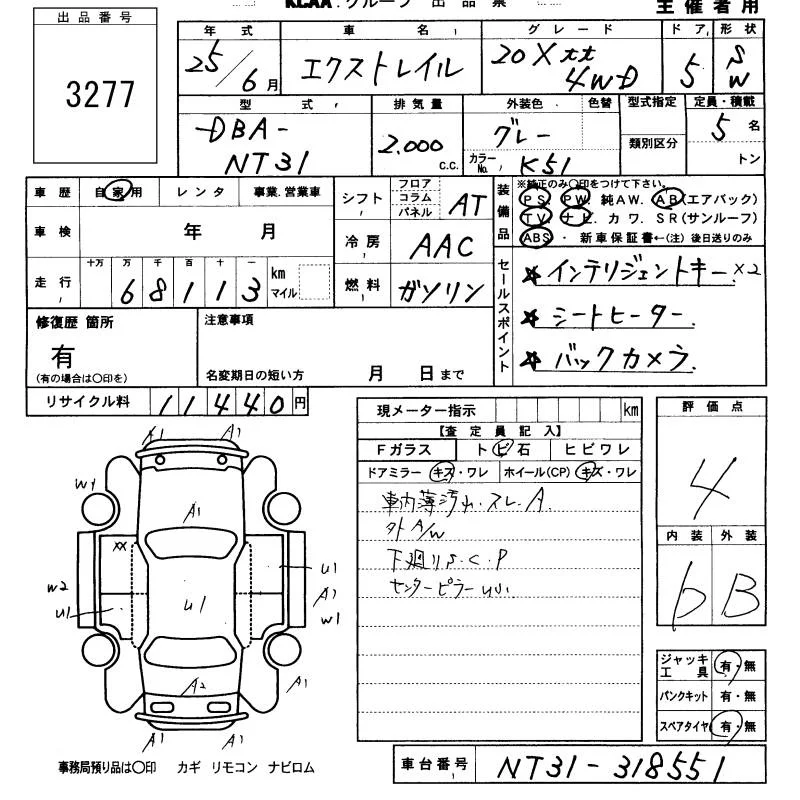 KCAA.グループ 出品票
主催者用
出品番号
3277
年式 車名 グレード ドア 形状
25/6月 エクストレイル 20X tt 4WD 5 SW
型式 排気量 外装色 色替 型式指定 定員・積載
DBA-NT31 2.000 c.c. グレー 類別区分 5名
カラーNo. K51 トン
車歴 自家用 レンタ 事業.営業車
シフト フロア コラム パネル AT
装備品
※純正のみ〇印をつけて下さい。
PS PW 純AW. AB(エアバック)
TV ナビ カワ. SR(サンルーフ)
ABS・新車保証書←(注) 後日送りのみ
車検 年 月
冷房 AAC
走行 十万 万 千 百 十 一
68113 km マイル
燃料 ガソリン
セールスポイント
☆インテリジェントキー ×2
☆シートヒーター.
☆バックカメラ.
修復歴 箇所
有
(有の場合は〇印を)
注意事項
名変期日の短い方 月 日まで
リサイクル料 11440円
現メーター指示 km
【査定員記入】
Fガラス トビ石 ヒビワレ
ドアミラー キズ・ワレ ホイール(CP) キズ・ワレ
車内薄汚れ.スレ.A.
外A/W
下廻りS.C.P
センターピラーu小
評価点
4
内装 外装
b B
ジャッキ工具 有・無
パンクキット 有・無
スペアタイヤ 有・無
A1 A1
W1
A1
XX
W2 U1 U1 U1 A1 W1
A2 A1
A1 A1
事務局預り品は〇印 カギ リモコン ナビロム
車台番号 NT31-318551